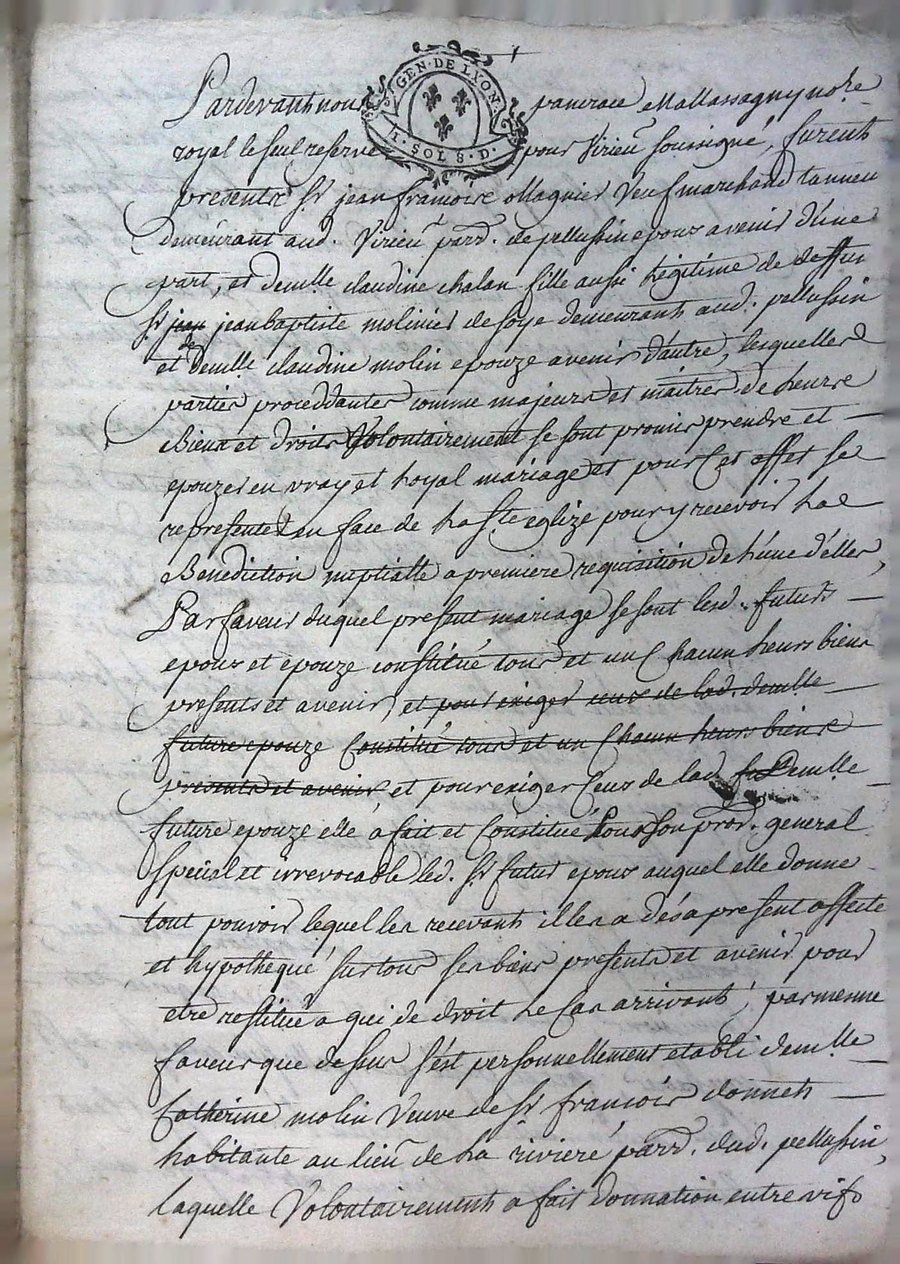 GEN · DE LYON
4 · SOLS · D.
Pardevant nou pancrace Mallassagny no.re
royal le seul reservé pour Virieu soussigné, furent
presents Sr. jean francois ollagnier Veuf marchand tanneu
demeurant aud. Virieu parr. de pellussin epoux avenir d'úne
part, et demlle claudine chalan fille aussi Légitime de deffun
Sr. jean jean baptiste molinier de soye demeurant aud. pellussin
et de demlle claudine molin epouze avenir d'autre, lesquelles
parties proceddantes comme majeurs et maitres de Leurs
Biens et droits Volontairement se sont promis prendre et
epouzer en vray et Loyal mariage et pour Cet effet se
representer en face de La Ste eglize pour y recevoir La
Benediction nuptialle a premiere requisition de L'úne d'elles,
Par faveur duquel present mariage se sont lesd. futurs
epoux et epouze constitué tous et un Chacun Leurs biens
presents et avenir, et pour exiger ceux de lad. demlle
future epouze Constitué tous et un Chacun Leurs biens
presents et avenir, et pour exiger Ceux de lad. demlle
future epouze elle a fait et Constitué pour son proc. general
special et irrevocable led. Sr. futur epoux auquel elle donne
tout pouvoir lequel les recevant il les a dés a present affecté
et hypothequé sur tous ses biens presents et avenir pour
etre restitué a qui de droit Le Cas arrivant, par meme
faveur que dessus s'est personnellement etabli demlle
Catherine molin Veuve de Sr. francois donnet
habitante au lieu de La riviere parr. dud. pellussin,
laquelle Volontairement a fait donnation entre vifs